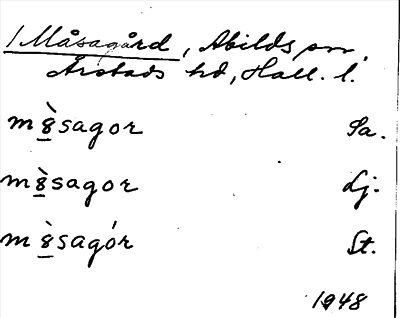 1 Måsagård, Abilds sn,
Årstads hd, Hall. l.
m8̠̀sagor Sa.
m8̠̀sagor Lj.
m8̠̀sagór St.
1948